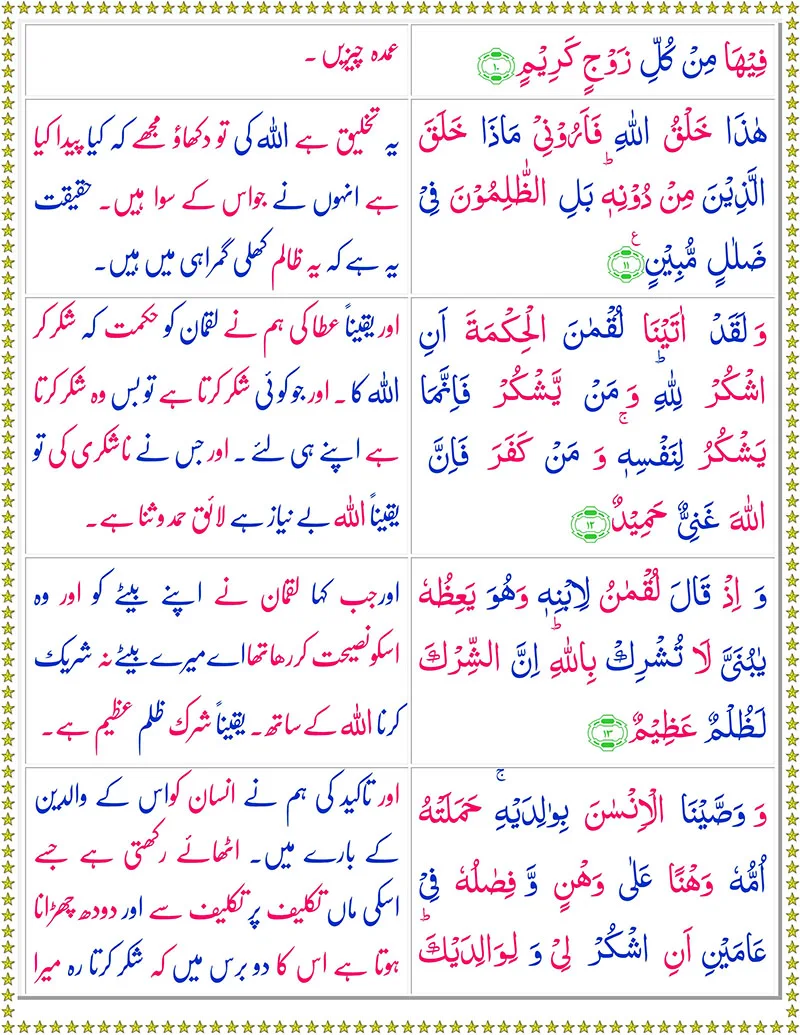 فِیْهَا مِنْ كُلِّ زَوْجٍ كَرِیْمٍ ۝۱۰
عمدہ چیزیں ۔
هٰذَا خَلْقُ اللّٰهِ فَاَرُوْنِیْ مَاذَا خَلَقَ
الَّذِیْنَ مِنْ دُوْنِهٖ ؕ بَلِ الظّٰلِمُوْنَ فِیْ
ضَلٰلٍ مُّبِیْنٍ ۝۱۱ ع
یہ تخلیق ہے اللہ کی تو دکھاؤ مجھے کہ کیا پیدا کیا
ہے انہوں نے جو اس کے سوا ہیں۔ حقیقت
یہ ہے کہ یہ ظالم کھلی گمراہی میں ہیں۔
وَ لَقَدْ اٰتَیْنَا لُقْمٰنَ الْحِكْمَةَ اَنِ
اشْكُرْ لِلّٰهِ ؕ وَ مَنْ یَّشْكُرْ فَاِنَّمَا
یَشْكُرُ لِنَفْسِهٖ ۚ وَ مَنْ كَفَرَ فَاِنَّ
اللّٰهَ غَنِیٌّ حَمِیْدٌ ۝۱۲
اور یقیناً عطا کی ہم نے لقمان کو حکمت کہ شکر کر
اللہ کا ۔ اور جو کوئی شکر کرتا ہے تو بس وہ شکر کرتا
ہے اپنے ہی لئے ۔ اور جس نے ناشکری کی تو
یقیناً اللہ بے نیاز ہے لائق حمد و ثنا ہے۔
وَ اِذْ قَالَ لُقْمٰنُ لِابْنِهٖ وَهُوَ یَعِظُهٗ
یٰبُنَیَّ لَا تُشْرِكْ بِاللّٰهِ ؕ اِنَّ الشِّرْكَ
لَظُلْمٌ عَظِیْمٌ ۝۱۳
اور جب کہا لقمان نے اپنے بیٹے کو اور وہ
اسکو نصیحت کر رہا تھا اے میرے بیٹے نہ شریک
کرنا اللہ کے ساتھ۔ یقیناً شرک ظلم عظیم ہے۔
وَ وَصَّیْنَا الْاِنْسٰنَ بِوٰلِدَیْهِ ۚ حَمَلَتْهُ
اُمُّهٗ وَهْنًا عَلٰی وَهْنٍ وَّ فِصٰلُهٗ فِیْ
عَامَیْنِ اَنِ اشْكُرْ لِیْ وَ لِوَالِدَیْكَ ؕ
اور تاکید کی ہم نے انسان کو اس کے والدین
کے بارے میں۔ اٹھائے رکھتی ہے جسے
اسکی ماں تکلیف پر تکلیف سے اور دودھ چھڑانا
ہوتا ہے اس کا دو برس میں کہ شکر کرتا رہ میرا